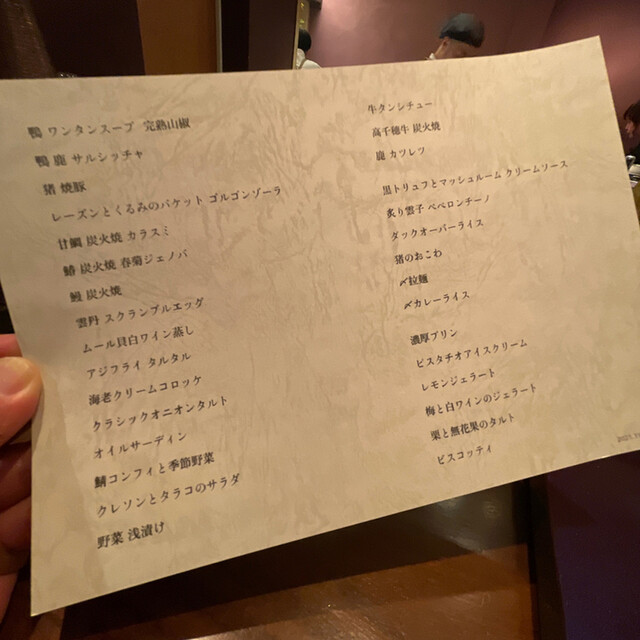 鴨 ワンタンスープ 完熟山椒
鴨 鹿 サルシッチャ
猪 焼豚
レーズンとくるみのバケット ゴルゴンゾーラ
甘鯛 炭火焼 カラスミ
鰆 炭火焼 春菊ジェノバ
鰻 炭火焼
雲丹 スクランブルエッグ
ムール貝白ワイン蒸し
アジフライ タルタル
海老クリームコロッケ
クラシックオニオンタルト
オイルサーディン
鯖コンフィと季節野菜
クレソンとタラコのサラダ
野菜 浅漬け
牛タンシチュー
高千穂牛 炭火焼
鹿 カツレツ
黒トリュフとマッシュルーム クリームソース
炙り雲子 ペペロンチーノ
ダックオーバーライス
猪のおこわ
〆拉麺
〆カレーライス
濃厚プリン
ピスタチオアイスクリーム
レモンジェラート
梅と白ワインのジェラート
栗と無花果のタルト
ビスコッティ